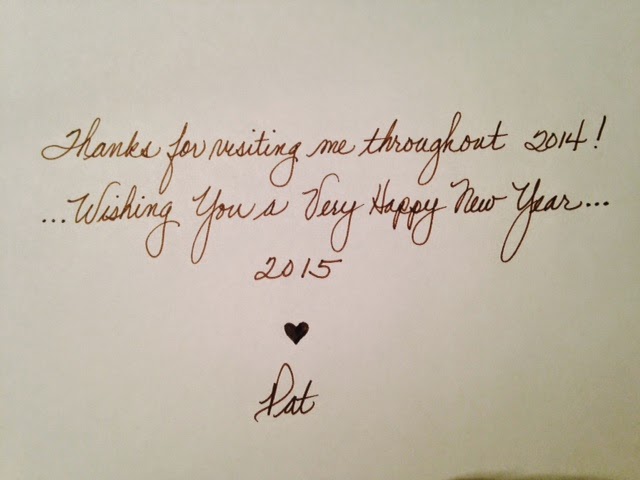 Thanks for visiting me throughout 2014!
...Wishing You a Very Happy New Year...
2015
♥
Pat